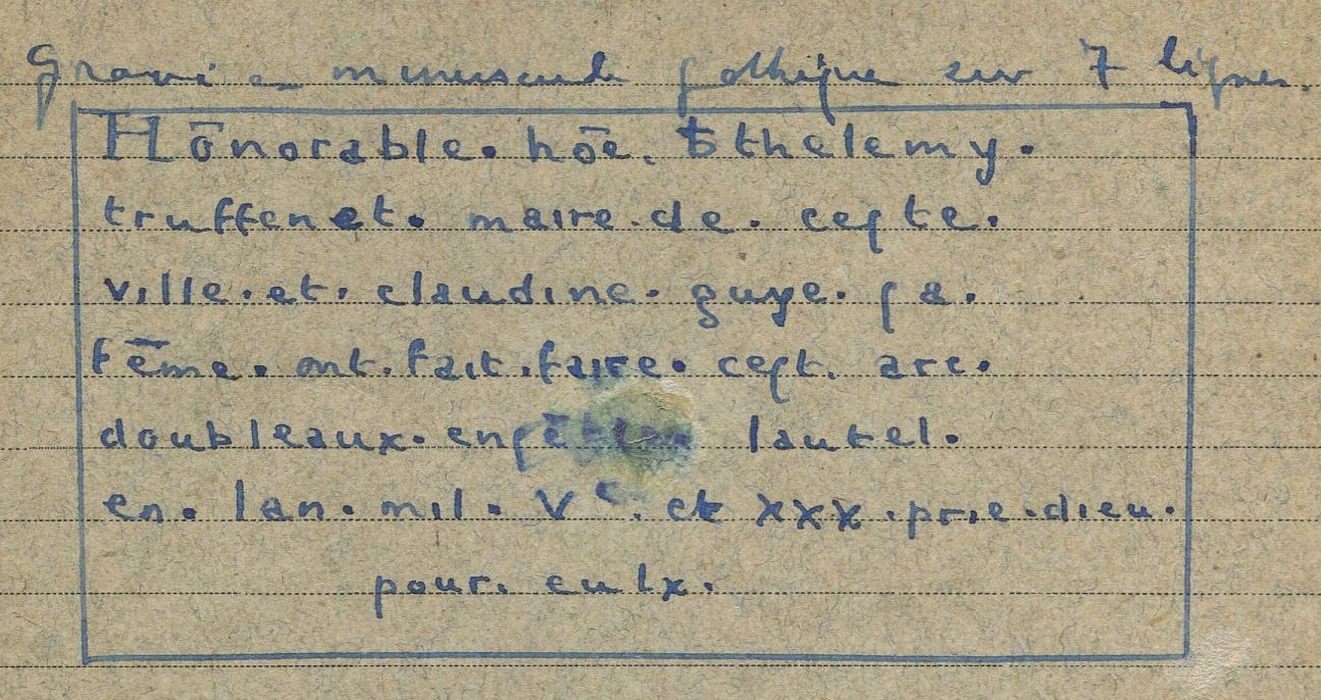 Gravé en minuscule gothique sur 7 lignes.
Hōnorable. hōe. ƀthelemy.
truffenet. maire. de. ceſte.
ville. et. claudine. guye. ſa.
fēme. ont. fait. faire. ceſt. arc.
doubleaux. lautel.
en. lan. mil. Vᶜ. et xxx. prie. dieu.
pour. eulx.